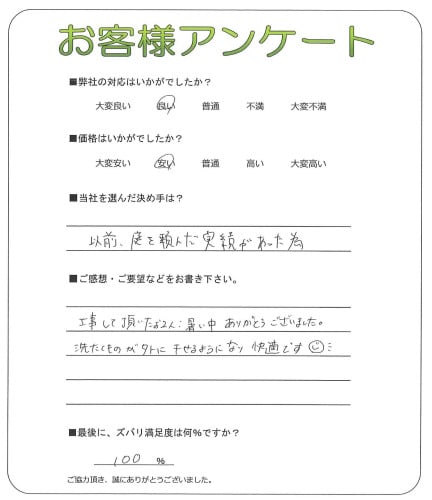 お客様アンケート
■弊社の対応はいかがでしたか？
大変良い 良い 普通 不満 大変不満
■価格はいかがでしたか？
大変安い 安い 普通 高い 大変高い
■当社を選んだ決め手は？
以前、庭を頼んだ実績があった為
■ご感想・ご要望などをお書き下さい。
工事して頂いたお2人：暑い中 ありがとうございました。
洗たくものが外に干せるようになり 快適です
■最後に、ズバリ満足度は何%ですか？
100 %
ご協力頂き、誠にありがとうございました。